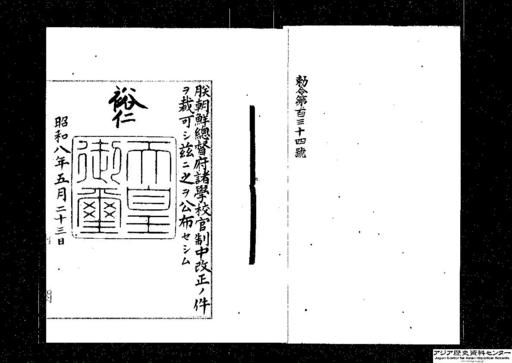 勅令第百三十四號
朕朝鮮總督府諸學校官制中改正ノ件
ヲ裁可シ茲ニ之ヲ公布セシム
裕仁
天皇
御璽
昭和八年五月二十三日
アジア歴史資料センター
Japan Center for Asian Historical Records